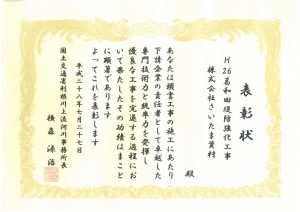 表彰状
H26葛和田堤防強化工事
株式会社さいたま資材
殿
あなたは頭書工事の施工にあたり
下請企業の責任者として卓越した
専門技術力と統率力を発揮し
優良な工事を完遂する過程にお
いて果たしたその功績はまこと
に顕著であります
よってこれを表彰します
平成二十八年七月二十七日
国土交通省利根川上流河川事務所長